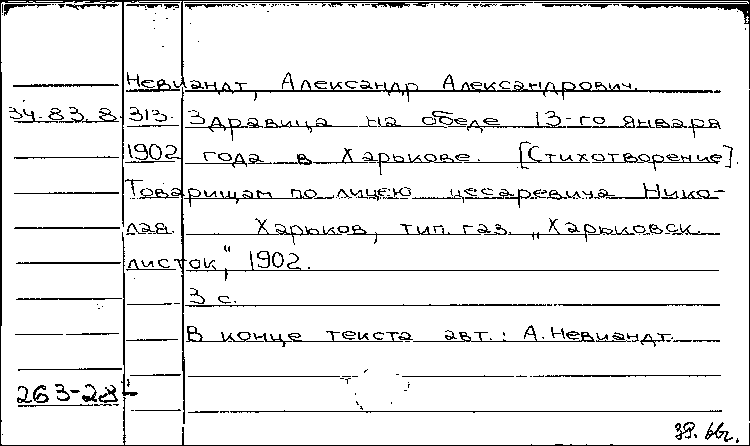 Невиандт, Александр Александрович.
34.83.8.313. Здравица на обеде 13-го января
1902 года в Харькове. [Стихотворение].
Товарищам по лицею цесаревича Нико-
лая. Харьков, тип. газ. „Харьковск.
листок", 1902.
3 с.
В конце текста авт.: А.Невиандт.
263-28